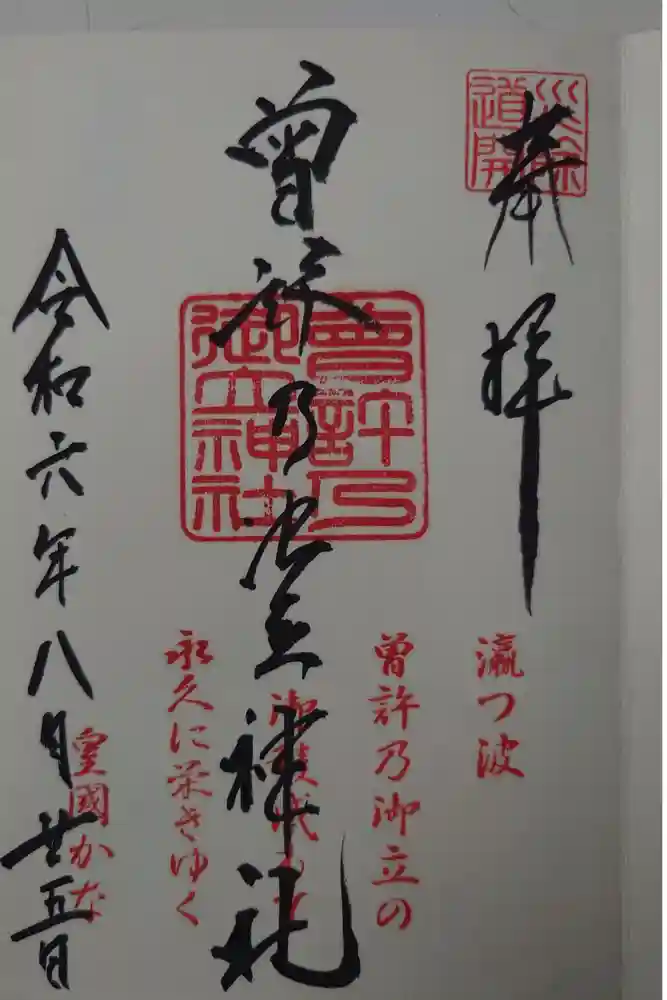 奉拝
災除
道開
瀛つ波
曽許乃御立の
曽許乃御立神社
曾許乃
御立神社
永久に栄きゆく
皇國かな
令和六年八月廿五日